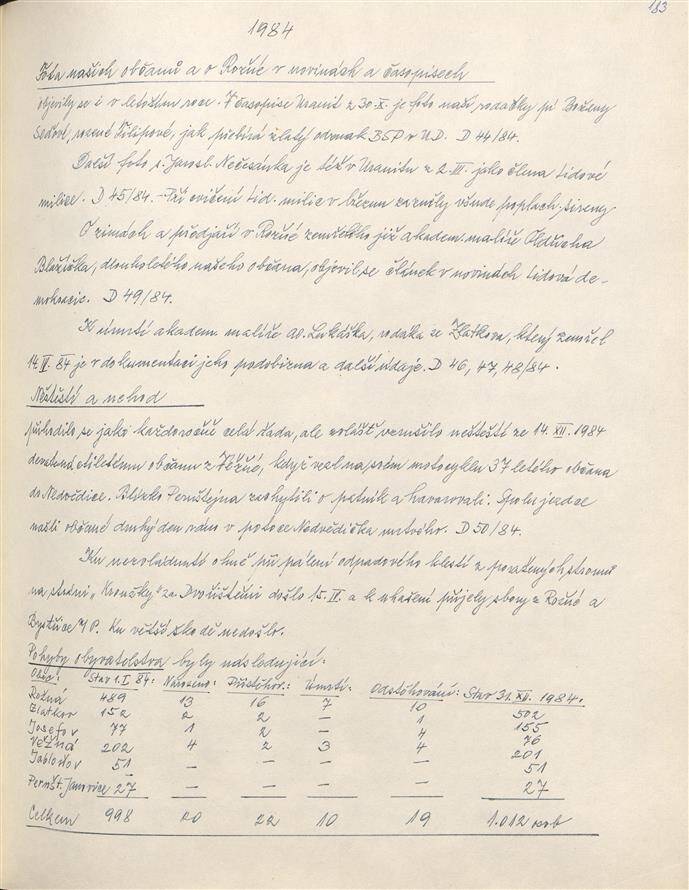 183
1984
Fota našich občanů a o Rožné v novinách a časopisech
objevily se i v letošním roce. V časopise Uranit z 30.X. je foto naší rodačky pí Boženy
rozené Filipové, jak přebírá zlatý odznak BSP v U.D. D 44/84.
foto s. Jarosl. Nečesánka je též v Uranitu z 2.III. jako člena Lidové
milice. D 45/84. - Při cvičení Lid. milic v březnu zazněly všude poplach. sireny
O zimách a předjaří v Rožné zemřelého již akadem. malíře Oldřicha
Blažíčka, dlouholetého našeho občana, objevil se článek v novinách Lidová de-
mokracie. D 49/84.
K úmrtí akadem. malíře Lukáška, rodáka ze Zlatkova, který zemřel
84 je v dokumentaci jeho podobizna a další údaje. D 46, 47, 48/84.
Neštěstí a nehod
přihodilo se jako každoročně celá řada, ale zvlášť neštěstí ze 14. XII. 1984
občanu z Věžné, když vezl na svém motocyklu 37 letého občana
do Nedvědice. Blízko Pernštejna zachytili o patník a havarovali. Spolujezdce
našli občané druhý den ráno v potoce Nedvědička mrtvého. D 50/84.
Ku nezvládnutí ohně při pálení odpadového klestí z poražených stromů
na stráni „ " za Dvořištěm došlo 15. a k uhašení přijely sbory z Rožné a
Bystřice n/P. Ku větší škodě nedošlo.
Pohyby obyvatelstva byly následující:
Obec: Stav 1.I. 84: Narozeno: Přistěhov.: Úmrtí: Odstěhování: Stav 31. XII. 1984.
Rožná 489 13 16 7 10 502
Zlatkov 152 2 2 – 1 155
Josefov 77 1 2 – 4 76
Věžná 202 4 2 3 4 201
Jabloňov 51 – – – – 51
Pernšt. Janovice 27 – – – – 27
Celkem 998 20 22 10 19 1.012 osob